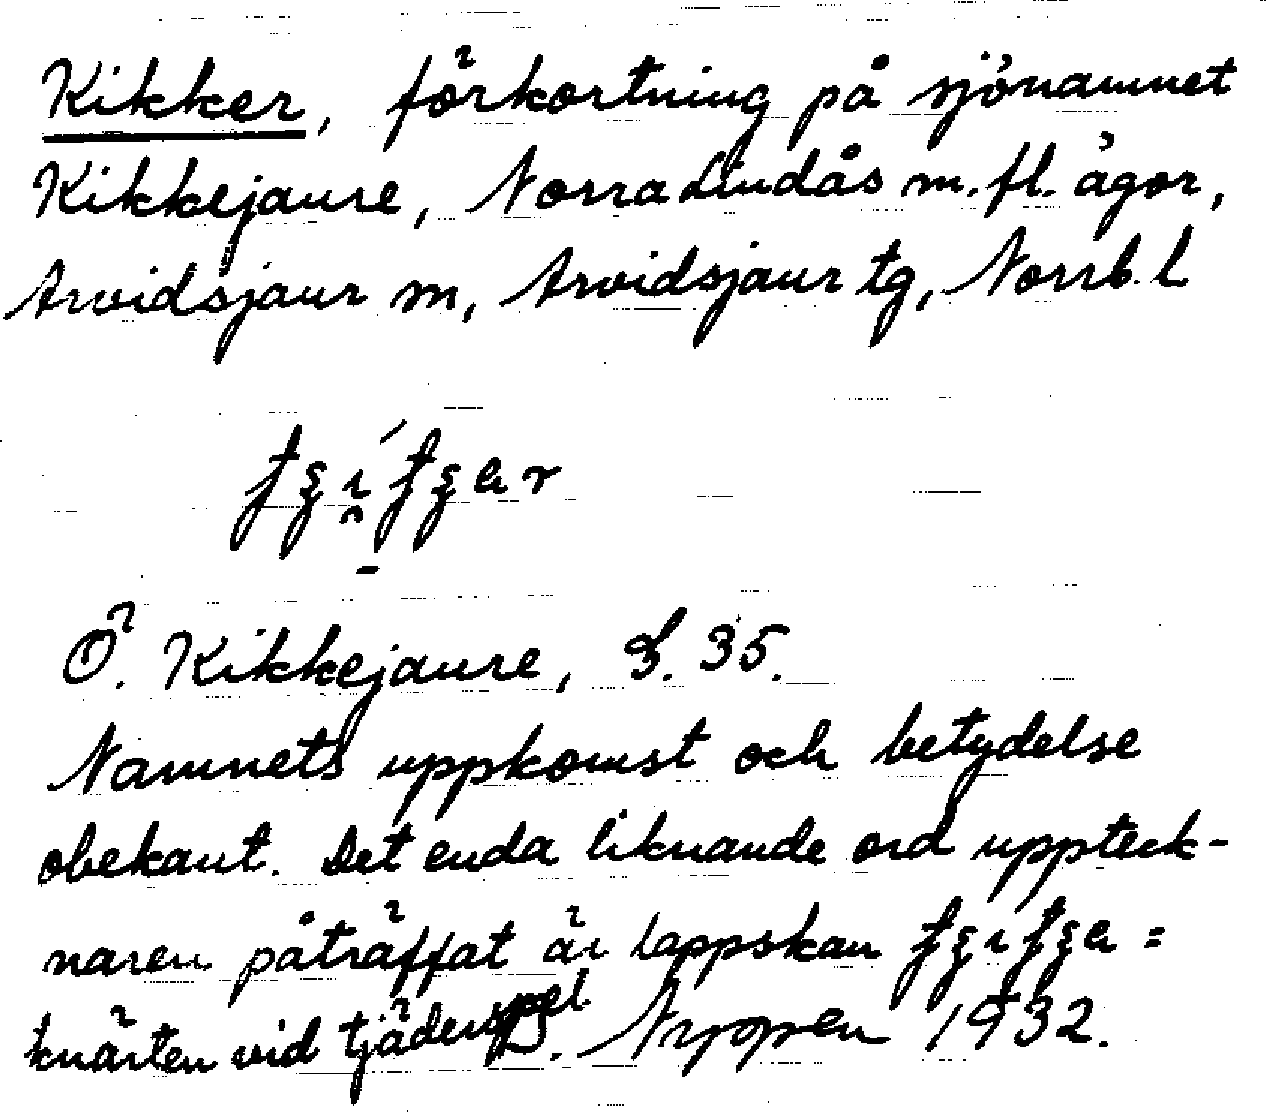 Kikker, förkortning på sjönamnet
Kikkejaure, Norra Lindås m. fl. ägor,
Arvidsjaur m, Arvidsjaur tg, Norrb. l
Ö. Kikkejaure, S. 35.
Namnets uppkomst och betydelse
obekant. Det enda liknande ord uppteck-
naren påträffat är lappskan =
knärten vid tjäderspel D. Nyppen 1932.